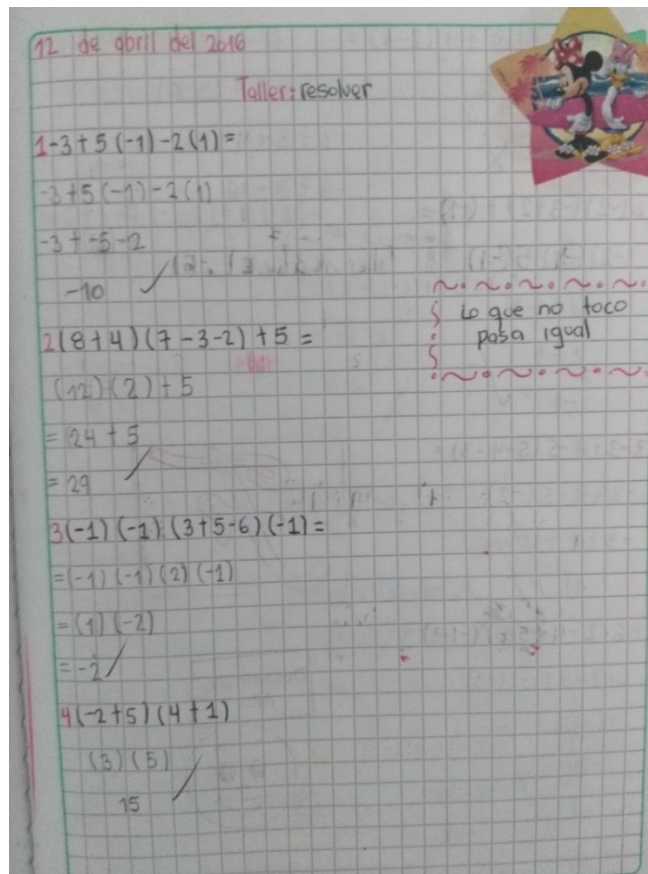 12 de abril del 2016
Taller: resolver
1-3+5(-1)-2(1)=
-3+5(-1)-2(1)
-3+-5-2
-10
Lo que no toco
pasa igual
2(8+4)(7-3-2)+5=
(12)(2)+5
=24+5
=29
3(-1)(-1)(3+5-6)(-1)=
=(-1)(-1)(2)(-1)
=(1)(-2)
=-2
4(-2+5)(4+1)
(3)(5)
15